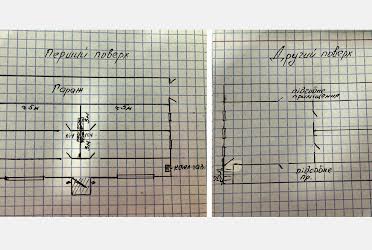 Перший поверх
Гараж
≈5м
≈5м
3м
3м
Котел газ.
Другий поверх
підсобне
приміщення
підсобне
пр.